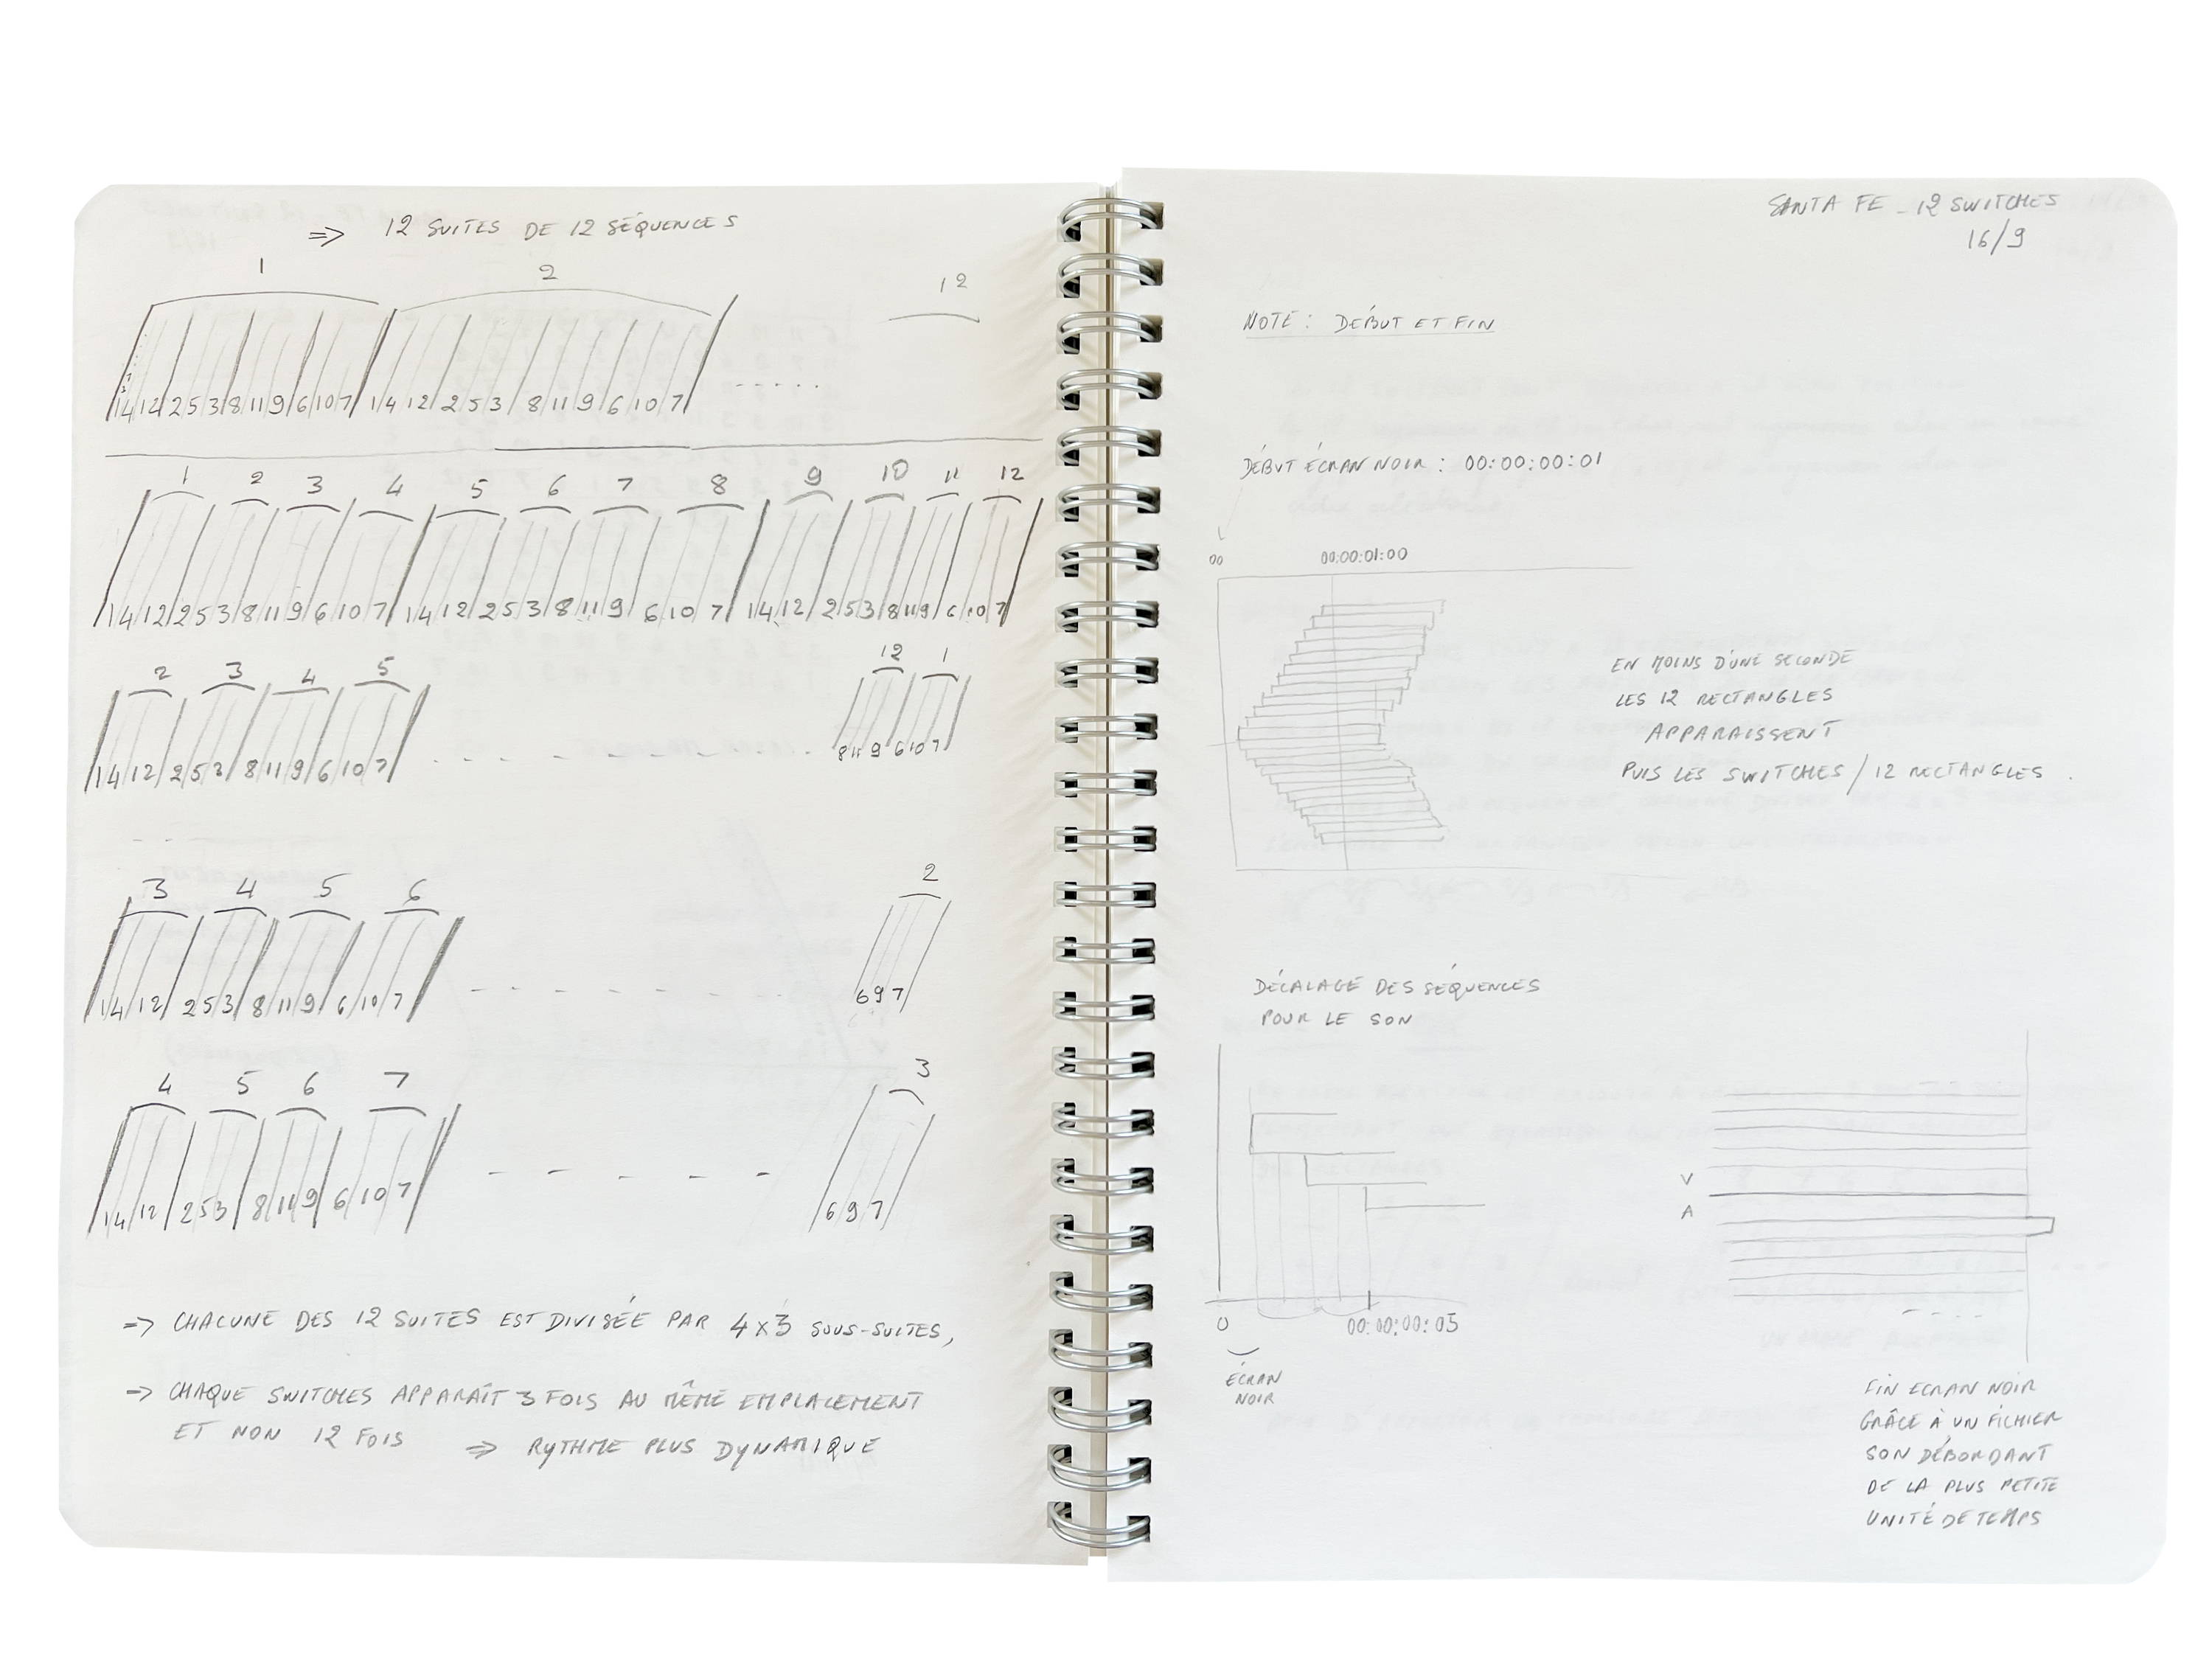 => 12 SUITES DE 12 SÉQUENCES
1 2 12
1 4 12 2 5 3 8 11 9 6 10 7 1 4 12 2 5 3 8 11 9 6 10 7 .....
1 2 3 4 5 6 7 8 9 10 11 12
1 4 12 2 5 3 8 11 9 6 10 7 1 4 12 2 5 3 8 11 9 6 10 7 1 4 12 2 5 3 8 11 9 6 10 7
2 3 4 5 12 1
1 4 12 2 5 3 8 11 9 6 10 7 8 11 9 6 10 7
3 4 5 6 2
1 4 12 2 5 3 8 11 9 6 10 7 6 9 7
4 5 6 7 3
1 4 12 2 5 3 8 11 9 6 10 7 6 9 7
=> CHACUNE DES 12 SUITES EST DIVISÉE PAR 4x3 SOUS-SUITES,
=> CHAQUE SWITCHES APPARAÎT 3 FOIS AU MÊME EMPLACEMENT
ET NON 12 FOIS => RYTHME PLUS DYNAMIQUE
SANTA FE - 12 SWITCHES
16/9
NOTE : DÉBUT ET FIN
DÉBUT ÉCRAN NOIR : 00:00:00:01
00 00:00:01:00
EN MOINS D'UNE SECONDE
LES 12 RECTANGLES
APPARAISSENT
PUIS LES SWITCHES / 12 RECTANGLES .
DÉCALAGE DES SÉQUENCES
POUR LE SON
V
A
0 00:00:00:05
ÉCRAN
NOIR
FIN ECRAN NOIR
GRÂCE À UN FICHIER
SON DÉBORDANT
DE LA PLUS PETITE
UNITÉ DE TEMPS